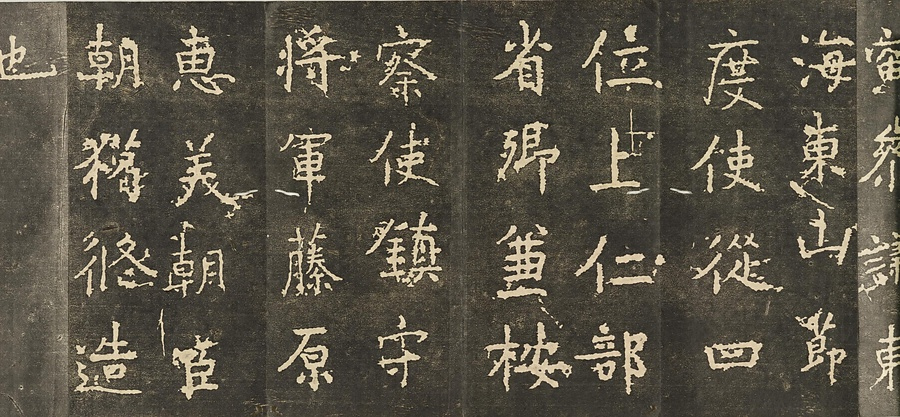 寅參議東
海東山節
度使從四
位上仁部
省卿兼按
察使鎮守
將軍藤原
恵美朝臣
朝獦修造
也